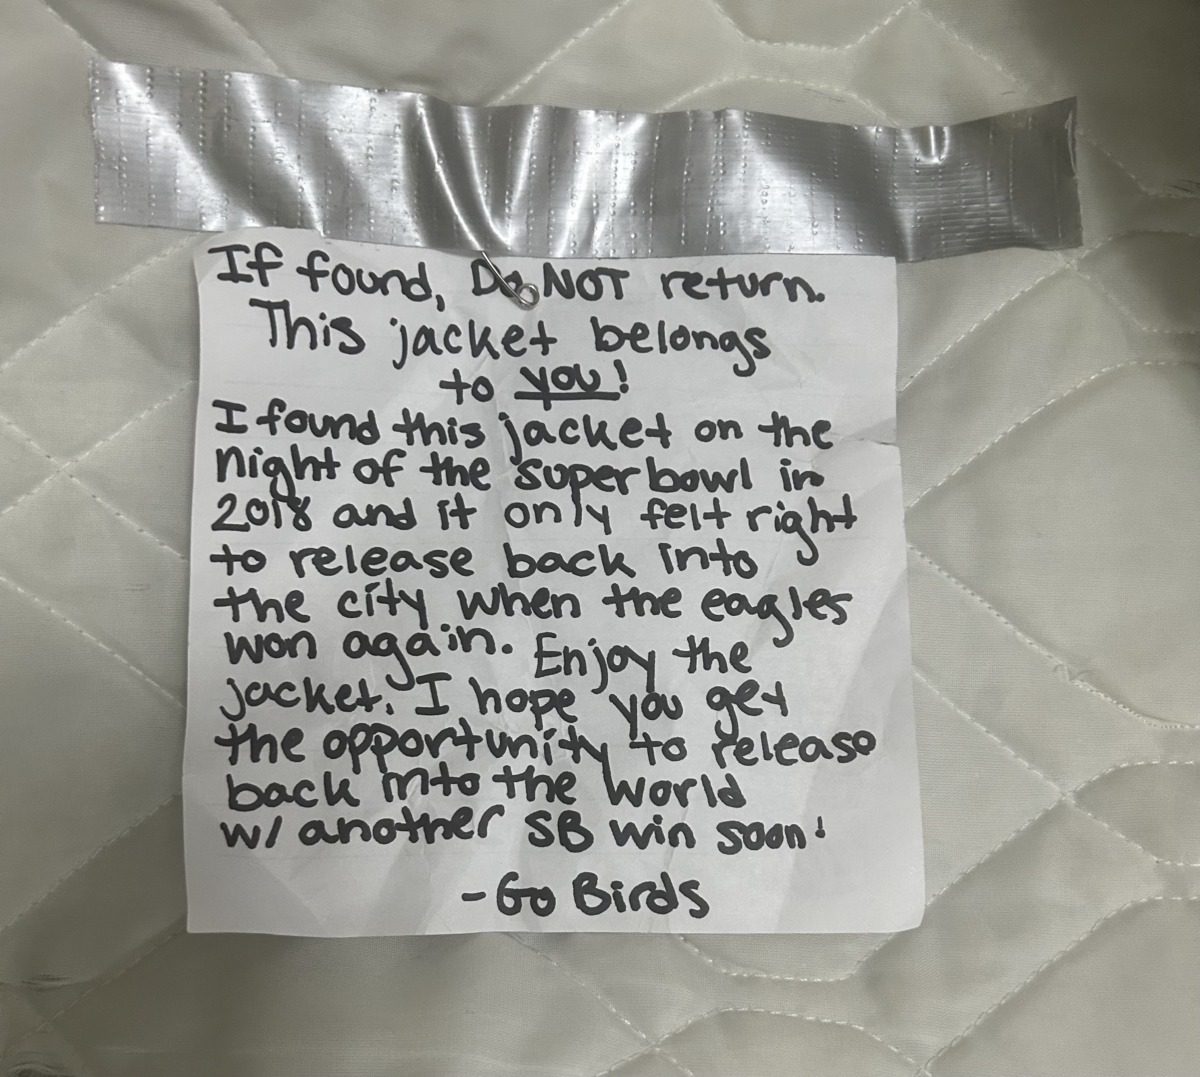 If found, Do NOT return.
This jacket belongs
to you!
I found this jacket on the
night of the superbowl in
2018 and it only felt right
to release back into
the city when the eagles
won again. Enjoy the
jacket. I hope you get
the opportunity to release
back into the world
w/ another SB win soon!
-Go Birds